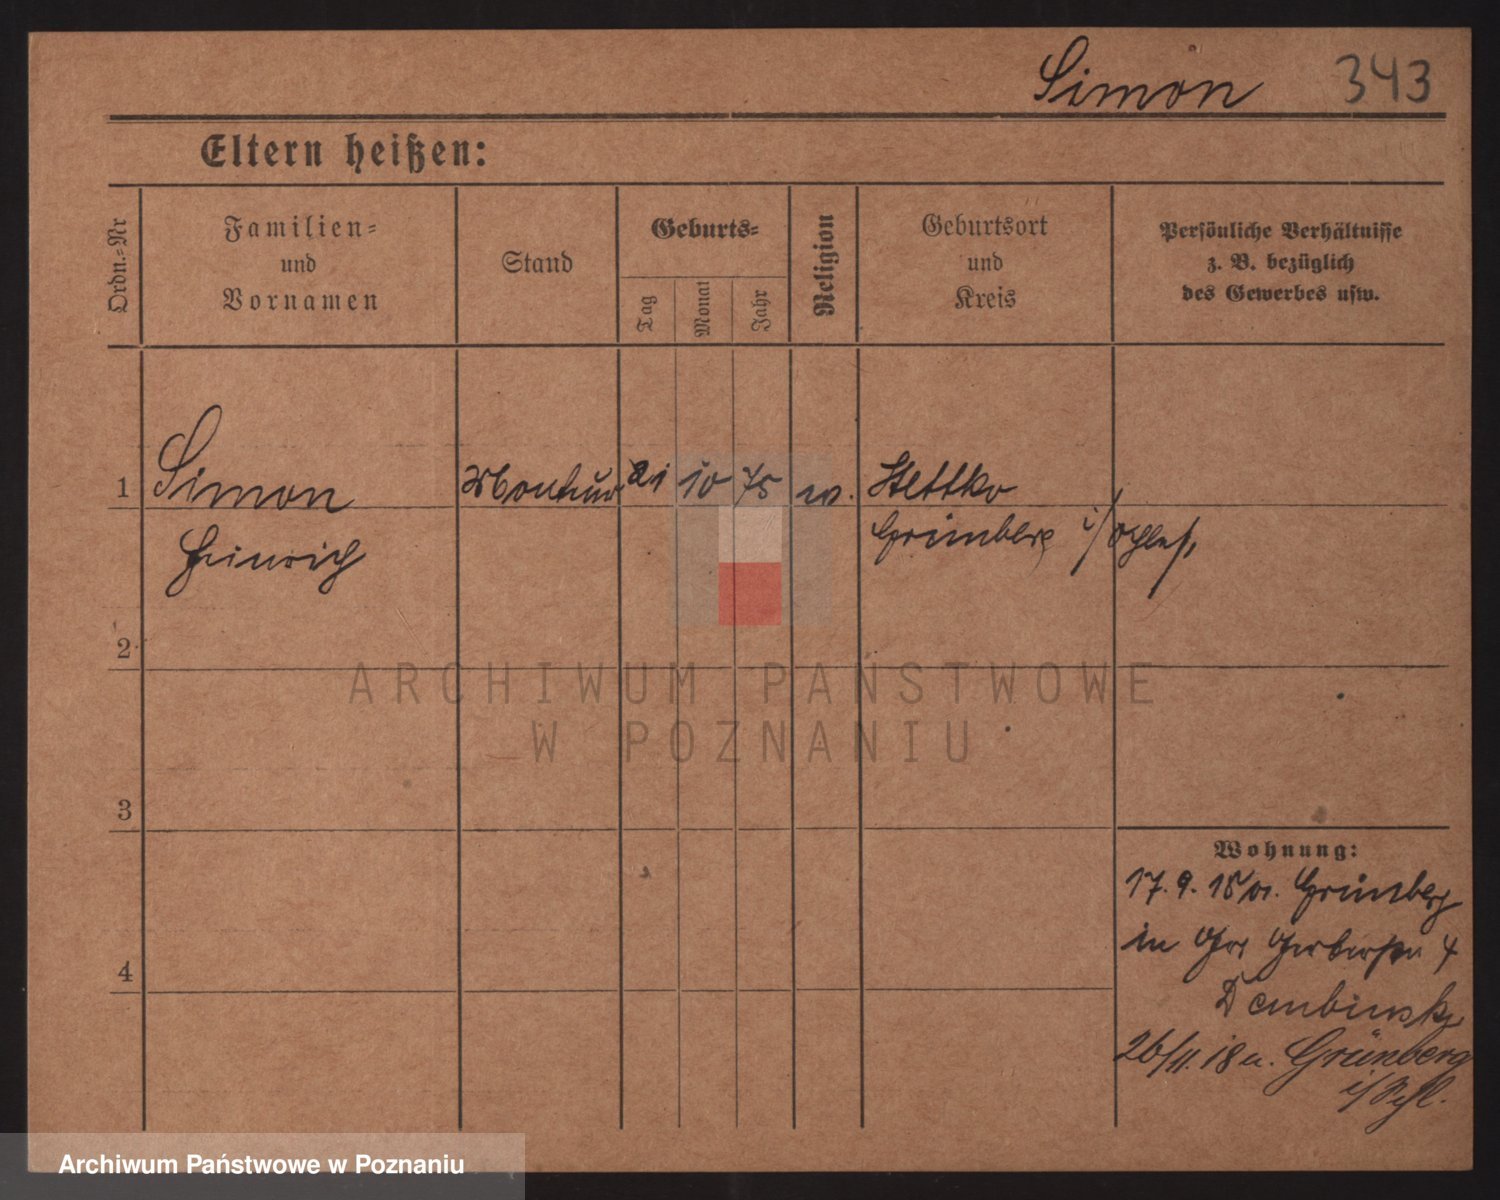 Simon 343
Eltern heißen:
Ordn.=Nr
Familien=
und
Vornamen
Stand
Geburts=
Tag
Monat
Jahr
Religion
Geburtsort
und
Kreis
Persönliche Verhältnisse
z. B. bezüglich
des Gewerbes usw.
1 Simon Monteur 21 10 75 ev.
Heinrich Grünberg i/Schles.
2
3
4
Wohnung:
17. 9. 18 Grünberg
in Gerberstr. 4
Dembinski
26/11. 18 n. Grünberg
i/Schl.
ARCHIWUM PAŃSTWOWE
W POZNANIU
Archiwum Państwowe w Poznaniu